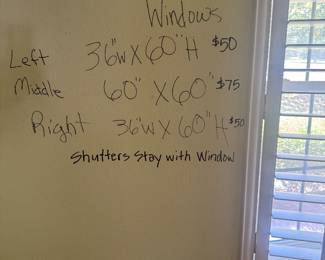 Windows
Left 36"W X 60"H $50
Middle 60" X 60" $75
Right 36"W X 60"H $50
Shutters Stay with Window